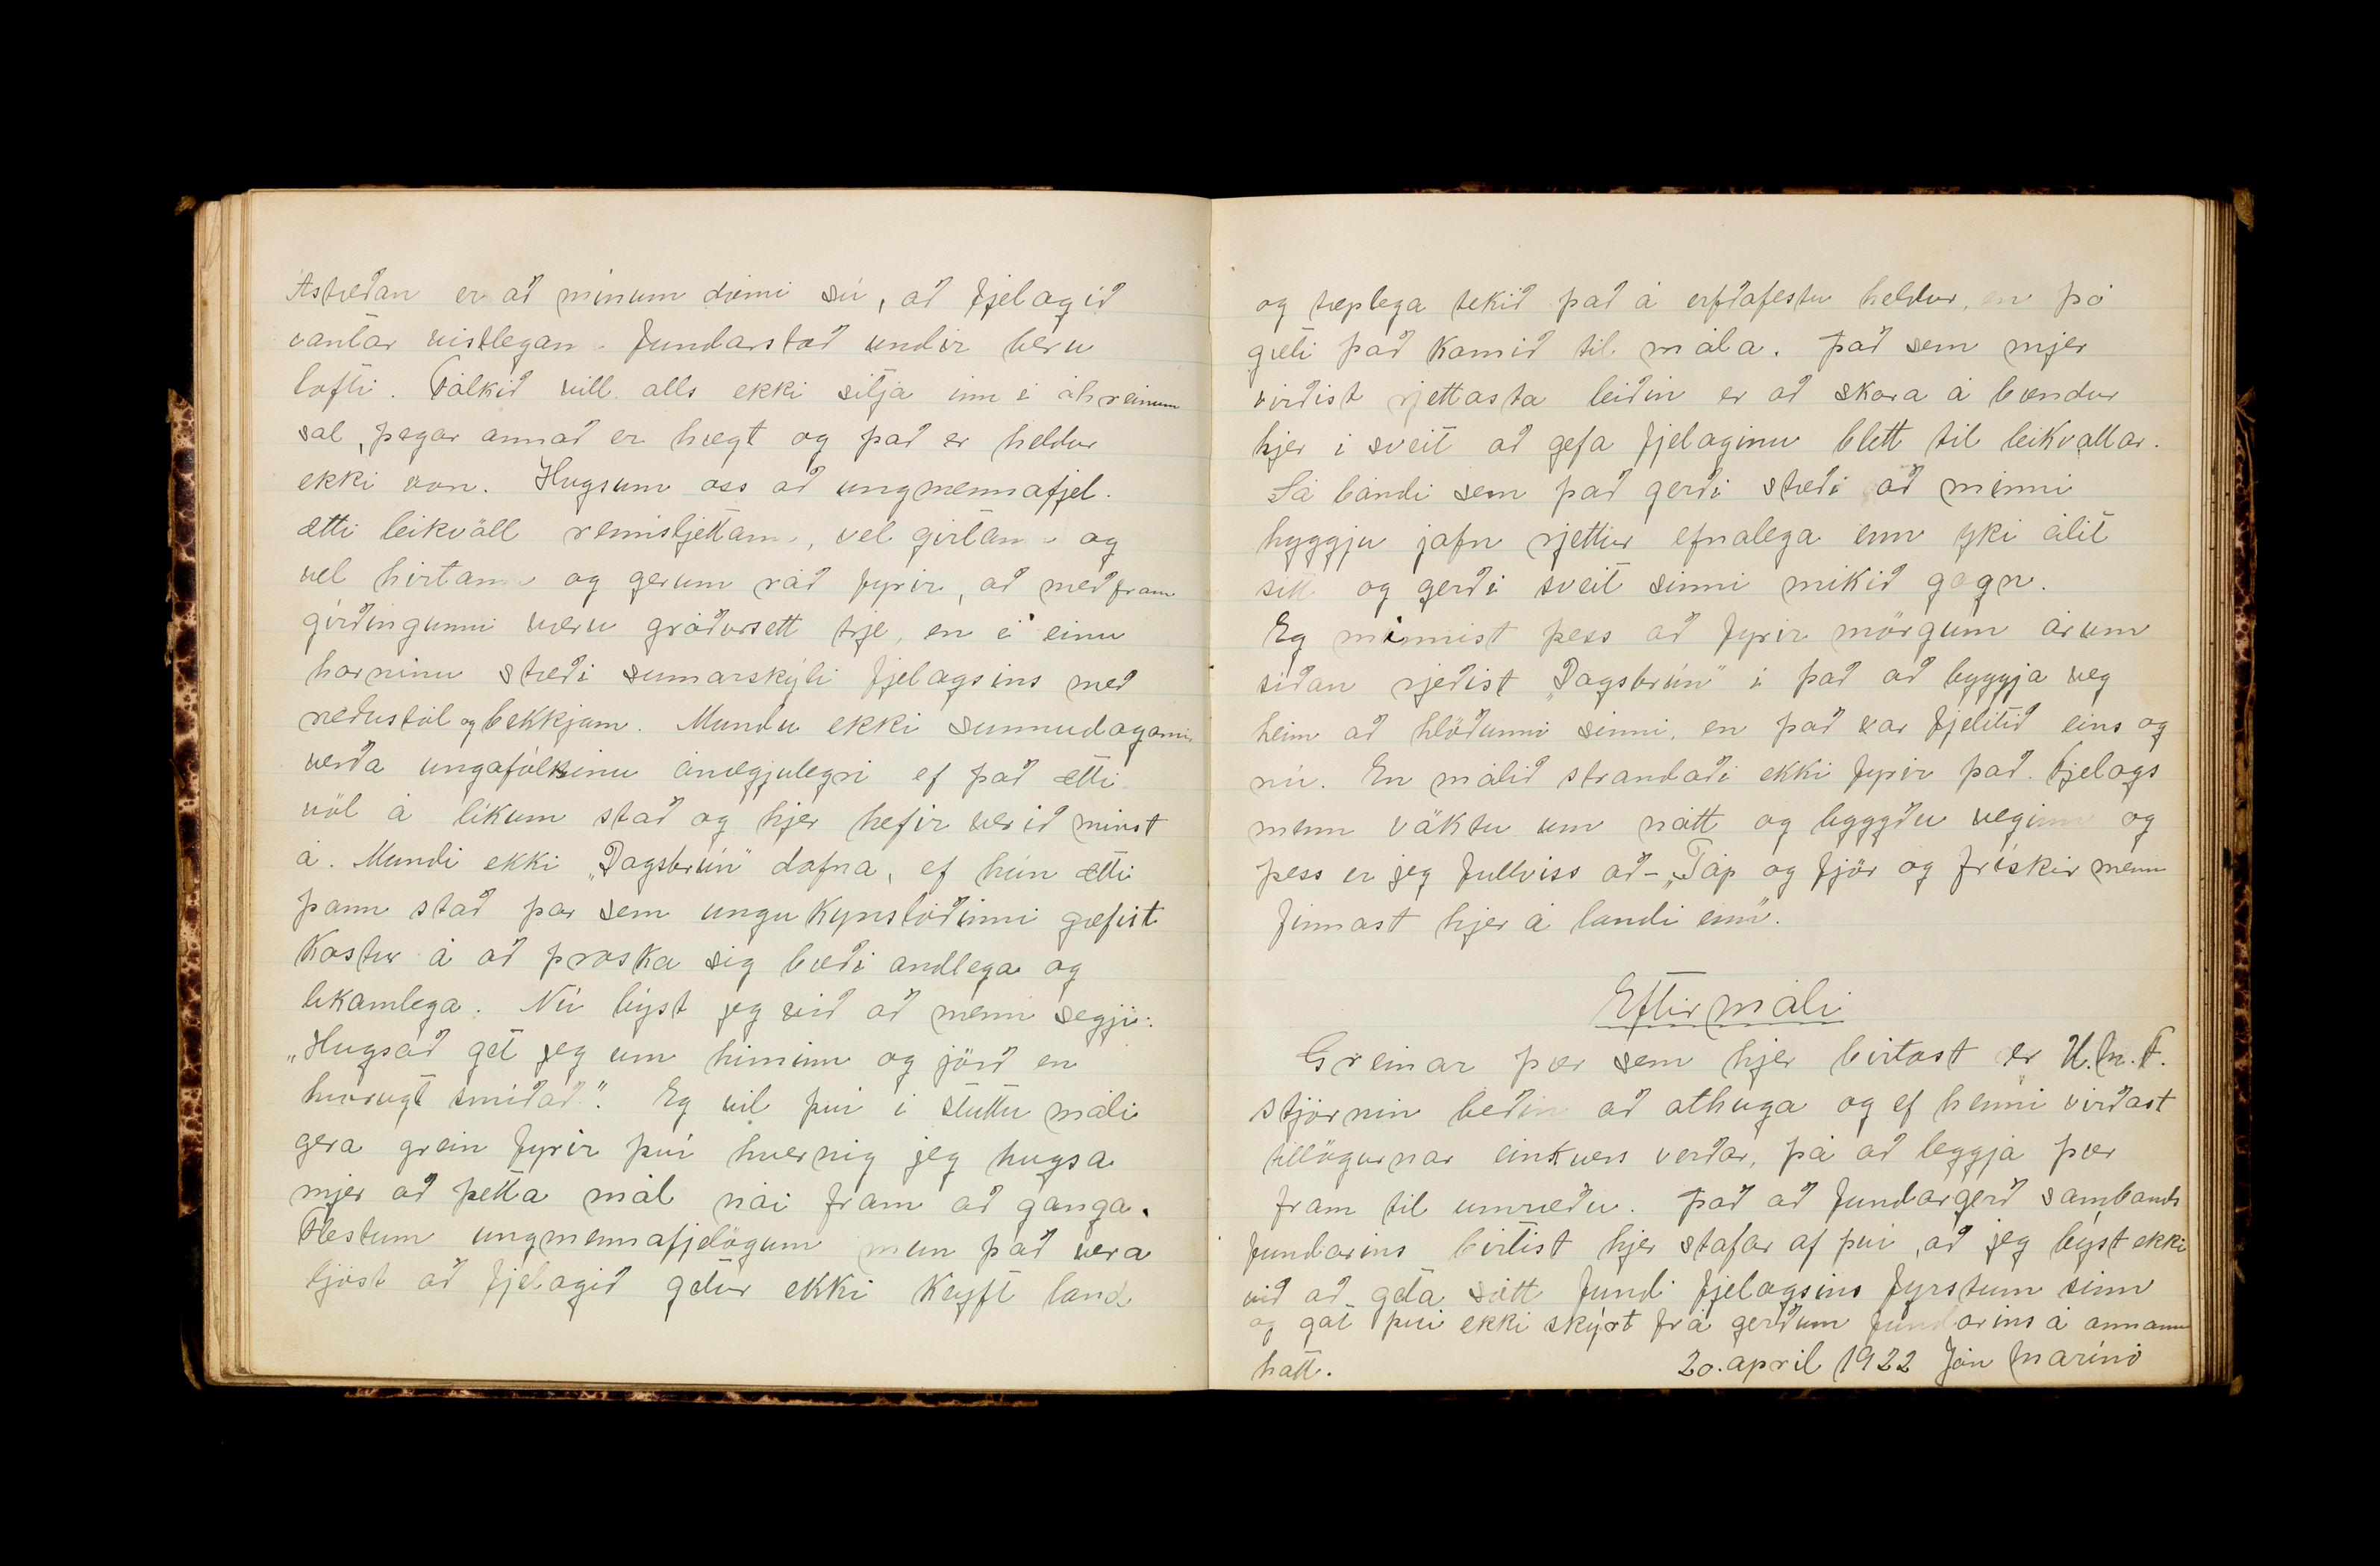 Ástæðan er að mínum dæmi sú, að fjelagið
vantar vistlegan fundarstað undir beru
lofti. Fólkið vill alls ekki sitja inn í óhreinum
sal, þegar annað er hægt og það er heldur
ekki von. Hugsum oss að ungmennafjel.
ætti leikvöll rennisljettann, vel girtan og
vel hirtan og gerum ráð fyrir, að meðfram
girðingunni væru gróðursett trje, en í einu
horninu stæði sumarskýli fjelagsins með
ræðustól og bekkjum. Mundu ekki sunnudagarnir
verða ungafólkinu ánægjulegri ef það ætti
völ á líkum stað og hjer hefir verið minst
á. Mundi ekki „Dagsbrún" dafna, ef hún ætti
þann stað þar sem ungu kynslóðinni gæfist
kostur á að þroska sig bæði andlega og
líkamlega. Nú býst jeg við að menn segji:
„Hugsað get jeg um himinn og jörð en
hvorugt smíðað". Eg vil því í stuttu máli
gera grein fyrir því hvernig jeg hugsa
mjer að þetta mál nái fram að ganga.
Flestum ungmennafjelögum mun það vera
ljóst að fjelagið getur ekki keyft land
og tæplega tekið það á erfðafestu heldur, en þó
gæti það komið til mála. Það sem mjer
virðist rjettasta leiðin er að skora á bændur
hjer í sveit að gefa fjelaginu blett til leikvallar.
Sá bóndi sem það gerði stæði að minni
hyggju jafn rjettur efnalega enn yki álit
sitt og gerði sveit sinni mikið gagn.
Eg minnist þess að fyrir mörgum árum
síðan rjeðist „Dagsbrún" í það að byggja veg
heim að hlöðunni sinni, en það var fjelítið eins og
nú. En málið strandaði ekki fyrir það. Fjelags
menn vöktu um nátt og byggðu veginn og
þess er jeg fullviss að - „Táp og fjör og frískir menn
finnast hjer á landi enn".
Eftirmáli
Greinar þær sem hjer birtast er U.m.F.
stjórnin beðin að athuga og ef henni virðast
tillögurnar einkvers verðar, þá að leggja þær
fram til umræðu. Það að fundargerð sambands
fundarins birtist hjer stafar af því, að jeg býst ekki
við að geta sótt fundi fjelagsins fyrstum sinn
og gat því ekki skýrt frá gerðum fundarins á annann
hátt. 20. apríl 1922 Jón Marínó